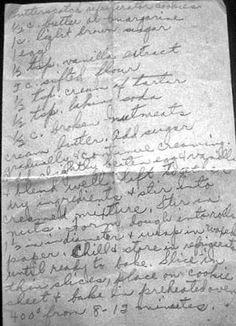 Butterscotch refrigerator cookies
1/2 c. butter or margarine
1 c. light brown sugar
1 egg
1/2 tsp. vanilla extract
2 c sifted flour
1/2 tsp. cream of tartar
1/2 tsp. baking soda
1/2 c. broken nutmeats
Cream butter. Add sugar
gradually & continue creaming.
Add slightly beaten egg & vanilla
blend well. Sift
dry ingredients & stir into
creamed mixture. Stir in
nuts. Form dough into rolls
in diameter & wrap in waxed
paper. Chill & store in refrigerator
until ready to bake. Slice in
thin slices, place on cookie
sheet & bake in preheated oven
400° from 8-12 minutes.